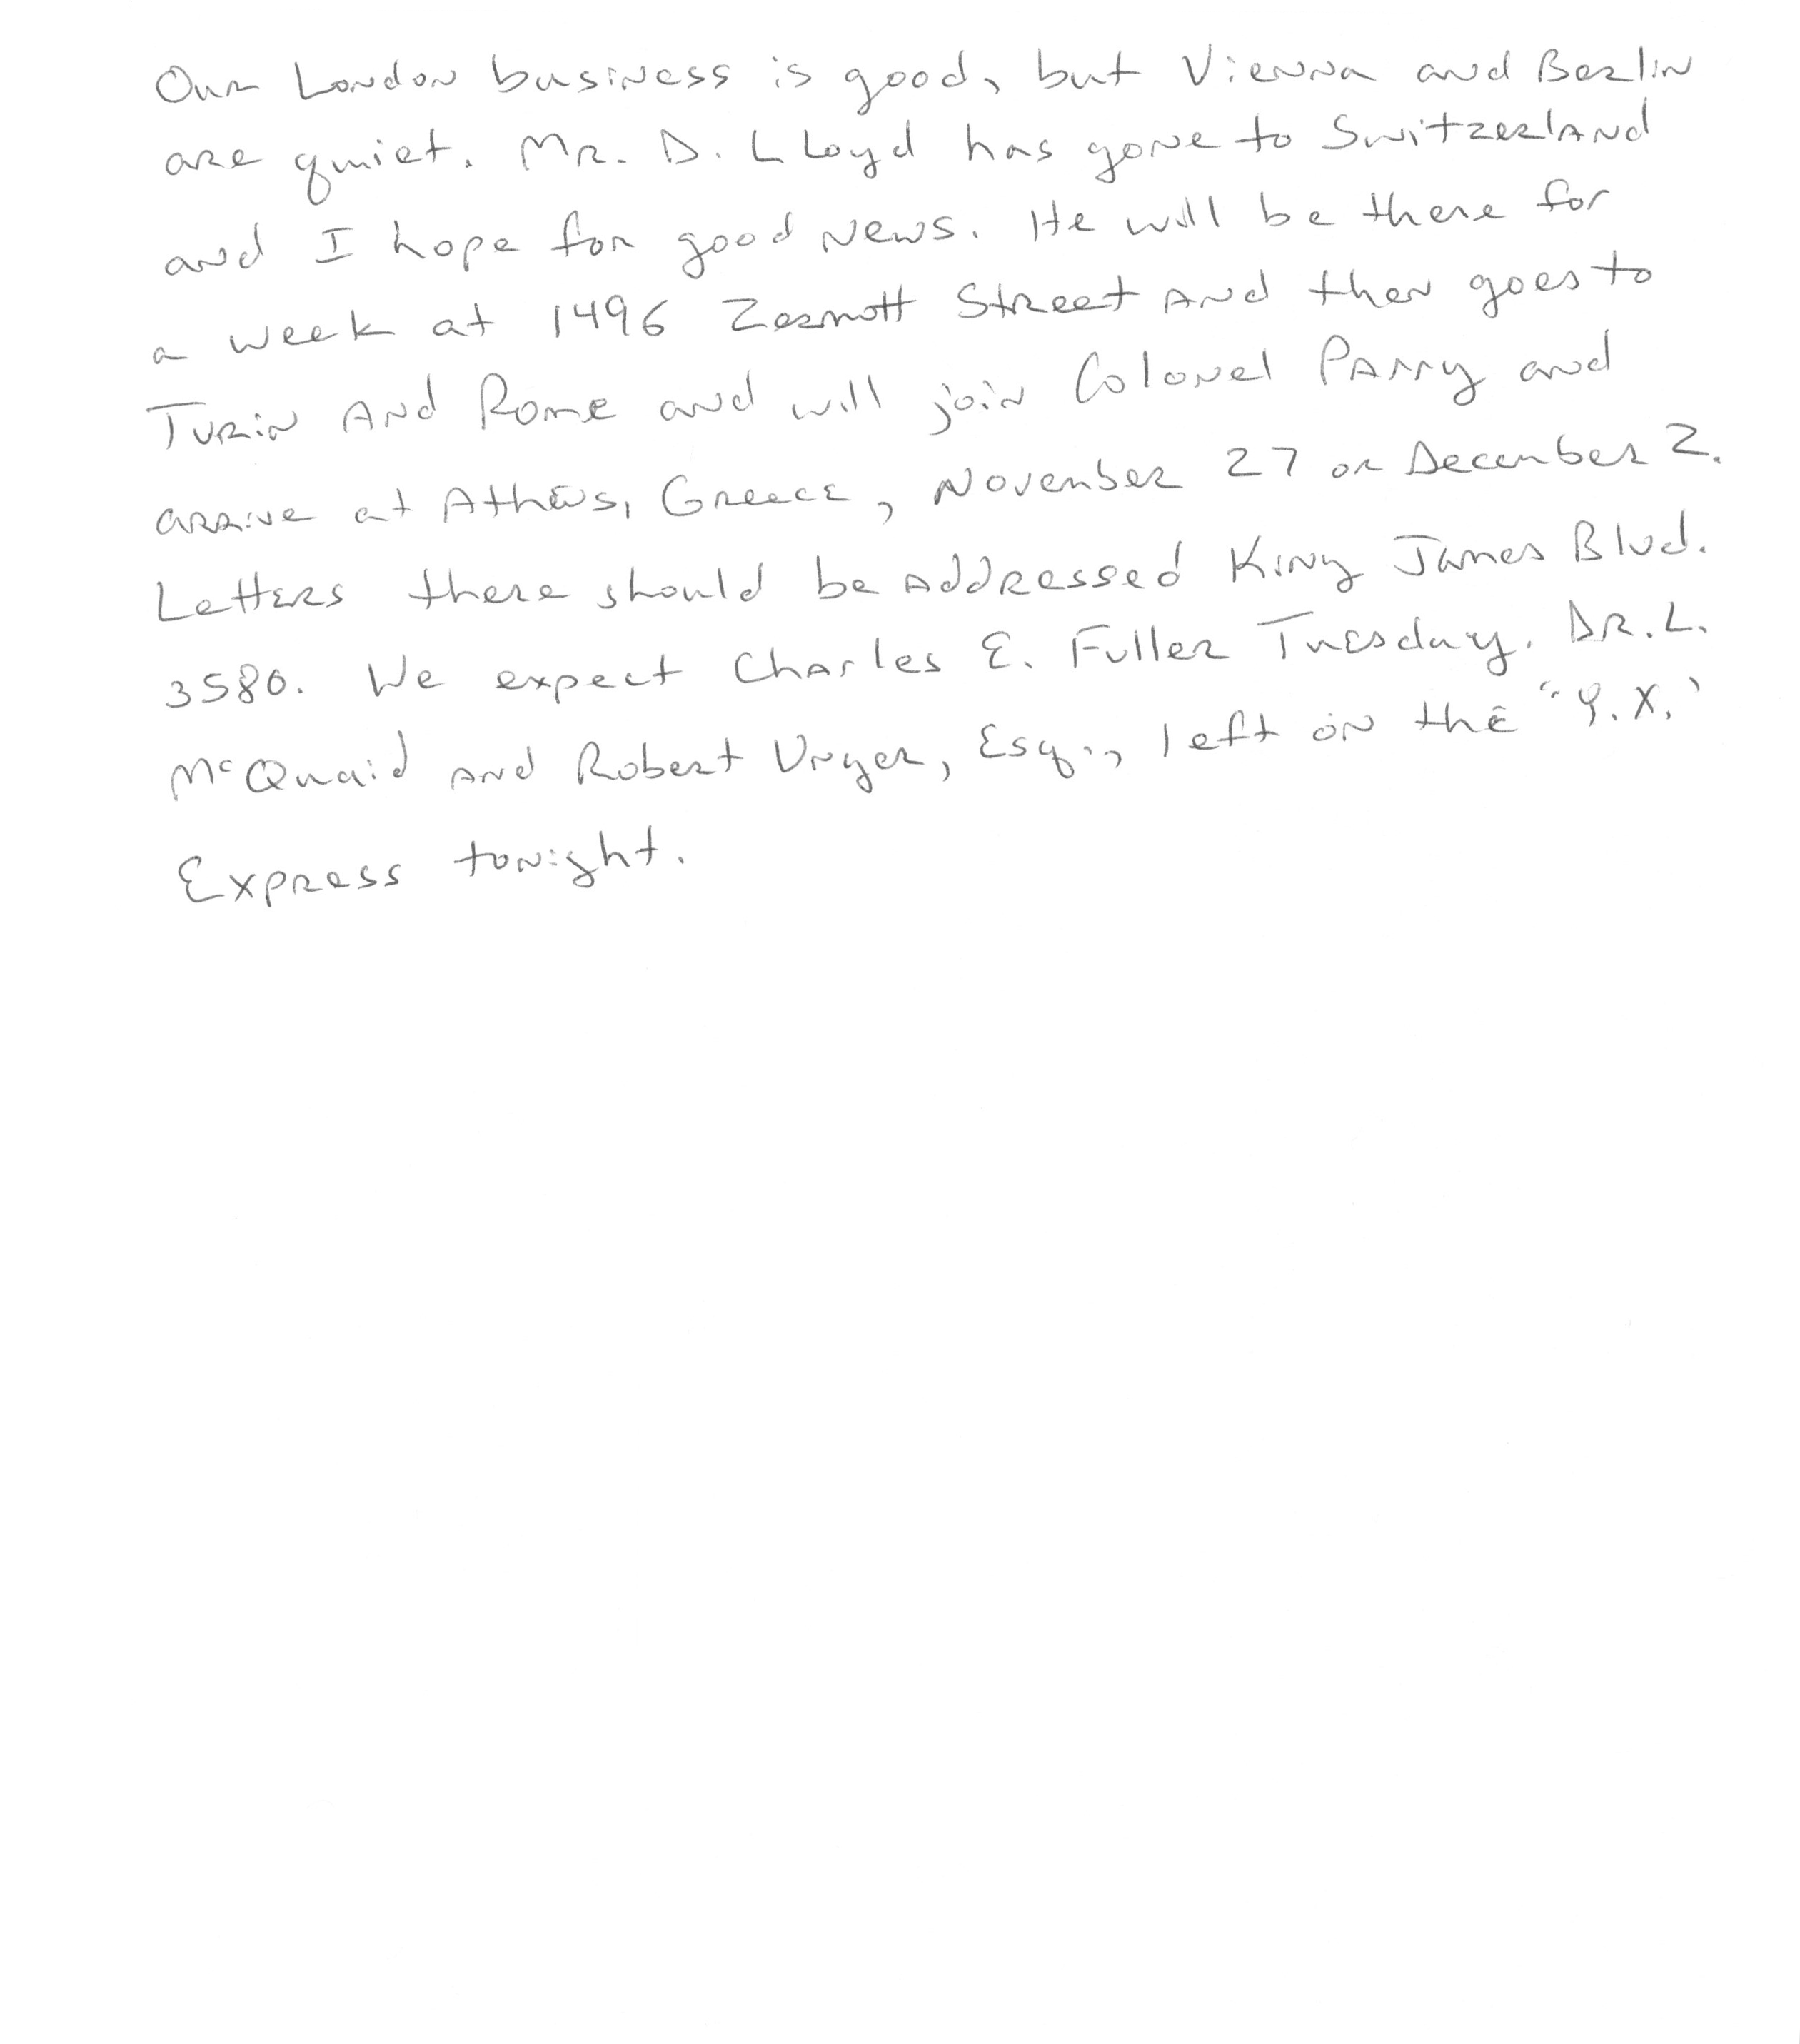 Our London business is good, but Vienna and Berlin
are quiet. Mr. D. Lloyd has gone to Switzerland
and I hope for good news. He will be there for
a week at 1496 Zermott Street and then goes to
Turin and Rome and will join Colonel Parry and
arrive at Athens, Greece, November 27 or December 2.
Letters there should be addressed King James Blvd.
3580. We expect Charles E. Fuller Tuesday. Dr. L.
McQuaid and Robert Unger, Esq., left on the "Y.X."
Express tonight.